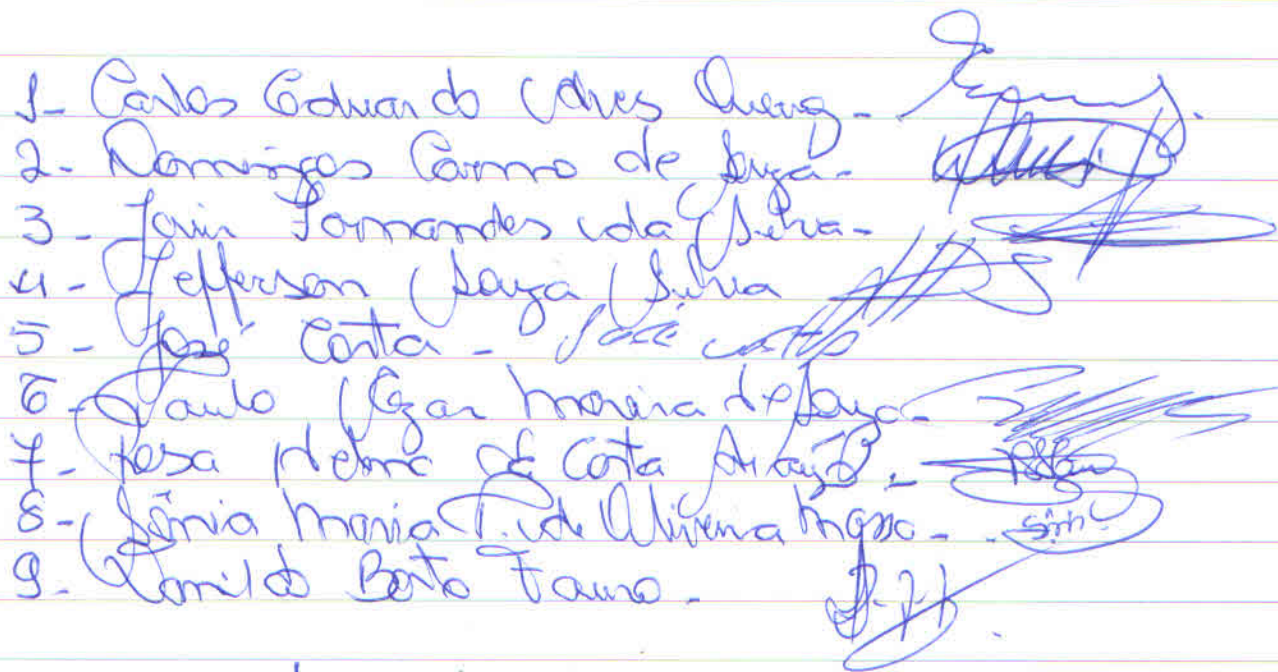 1- Carlos Eduardo Alves Queiroz -
2- Domingos Carmo de Souza -
3- Jair Fernandes da Silva -
4- Jefferson Souza Silva
5- José Costa - José Costa
6- Paulo Cezar Moreira de Souza -
7- Rosa de Costa Araújo -
8- Sônia Maria P. de Oliveira -
9- Bento